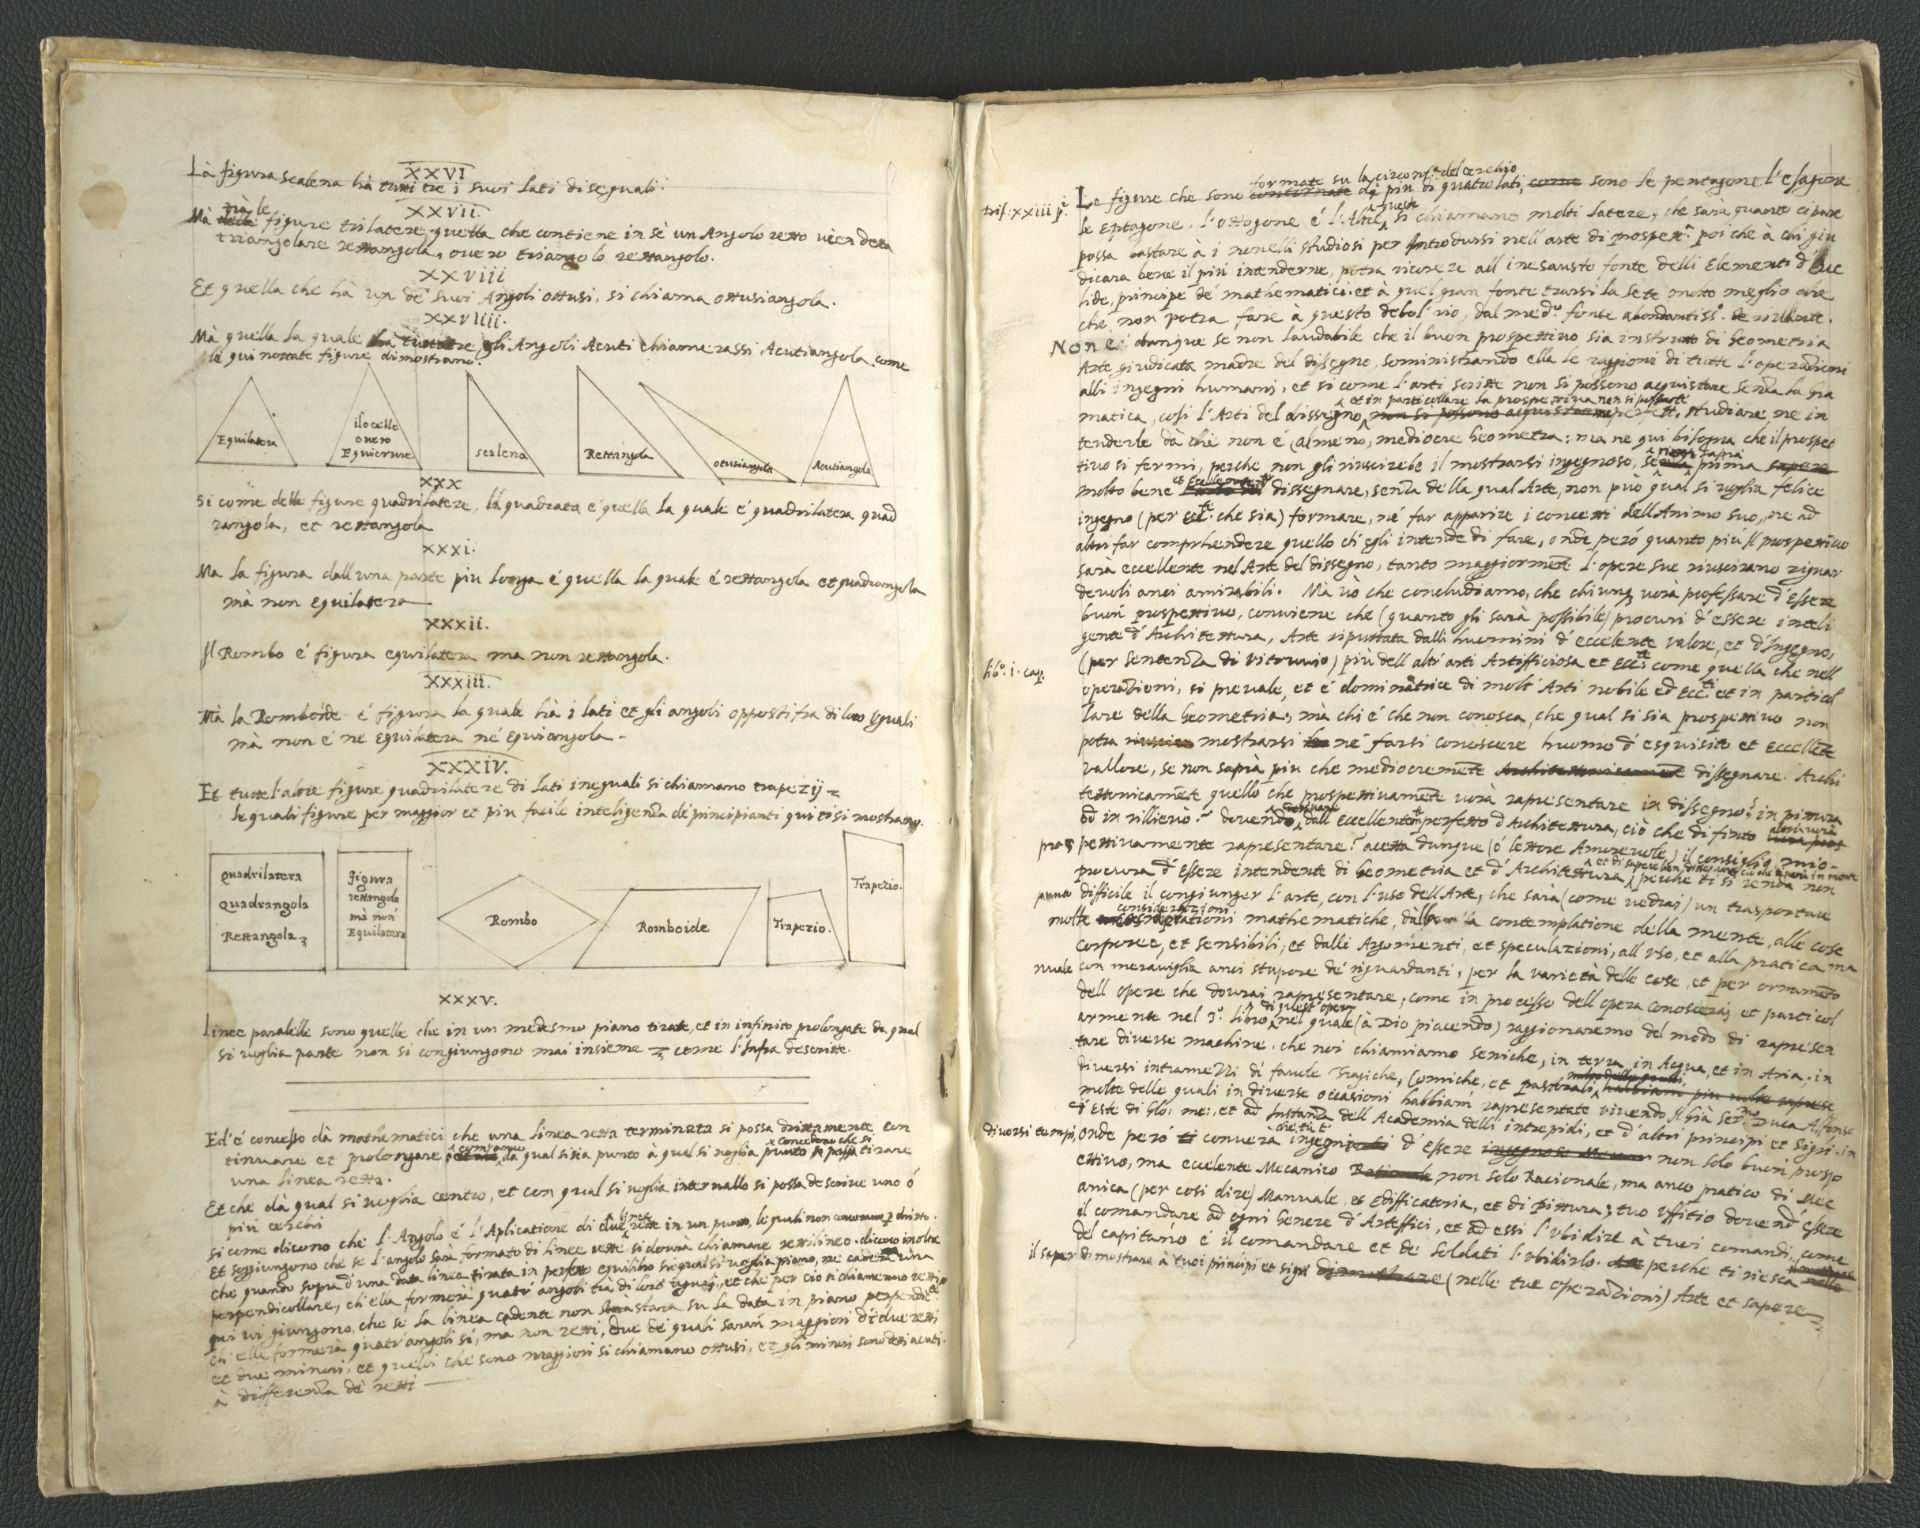 XXVI
Là figura scalena hà tutti tre i suoi lati disequali.
XXVII.
trà le
Mà figure trilatere, quella che contiene in sè un Angolo retto vien detta
triangolare rettangola, overo triangolo rettangolo.
XXVIII
Et quella che hà un de suoi Angoli ottusi, si chiama ottusiangola.
XXVIIII.
Mà quella la quale hà tutti tre gli Angoli Acuti chiamerassi Acutiangola come
le qui nottate figure dimostrano.
Equilatera
isocelle
overo
Equicrure
scalena
Rettangola
ottusiangola
Acutiangola
XXX
Si come delle figure quadrilatere, la quadrata é quella la quale é quadrilatera quad
rangola, et rettangola
XXXI.
Ma la figura dall una parte piu longa é quella la quale é rettangola et quadrangola
mà non equilatera
XXXII.
Il Rombo é figura equilatera ma non rettangola.
XXXIII.
Mà la Romboide é figura la quale hà i lati et gli angoli opposti fra di loro Eguali
mà non é né Equilatera né Equiangola.
XXXIV.
Et tutte l'altre figure quadrilatere di lati ineguali si chiamano trapezij
le quali figure per maggior et piu facile inteligenza de principianti qui ti si mostrano.
Quadrilatera
Quadrangola
Rettangola
Figura
rettangola
mà non
Equilatera
Rombo
Romboide
Trapezio.
Trapezio.
XXXV.
Linee paralelle sono quelle che in un medesmo piano tirate, et in infinito prolongate da qual
si voglia parte non si congiungono mai insieme come l'Infra descritte.
Ed é concesso dà mathematici che una linea retta terminata si possa drittamente con
tinuare et prolongare da qual si sia punto à qual si voglia punto tirare
concedono che si
una linea retta.
Et che dà qual si voglia centro, et con qual si voglia intervallo si possa descrive uno ó
piu cerchi
linee
si come dicono che l'Angolo é l'Aplicatione di due rette in un punto, le quali non
Et soggiungono che se l'angolo sarà formato di linee rette si dovrà chiamare rettilineo. dicono inoltre
che quando sopra d'una data linea tirata in equilibrio sù qual si voglia piano, ne caderà una
perpendicollare, ch'ella formerà quatr' angoli trà di loro eguali, et che per ciò si chiameranno retti
qui vi giungono, che se la linea cadente non starà su la data in piano perpendic
ch'ella formerà quatr'angoli sì, ma non retti, due de quali saran maggiori di due retti
et due minori, et quelli che sono maggiori si chiamano ottusi, et gli minori sono detti acuti.
à differenza de retti
formate su la circonf. del cerchio
Le figure che sono contornate di piu di quatro lati, come sono le pentagone l'esagone
trif: XXIII
queste
le Eptagone, l'ottogone é l'Altre, si chiamano molti latere, che sarà quanto ci pare
possa bastare à i novelli studiosi per Introdursi nell arte di prospett. poi che à chi giu
dicara bene il piu intenderne, potra ricorere all inesausto fonte delli Elementi d'Euc
lide, principe de mathematici et à quel gran fonte trarsi la sete molto meglio che
che non potra fare à questo debol rio, dal med.º fonte abondantiss.º derivante.
Non e' dunque se non laudabile che il buon prospettivo sia instrutto di Geometria
Arte giudicata madre del dissegno, soministrando ella le raggioni di tutte l'operationi
alli ingegni humani, et si come l'arti scritte non si possono acquistare senza la Gra
et in particollare la prospettiva non si possono
matica, cosi l'Arti del dissegno, non si possono acquistare perfett. studiare ne in
tenderle dà chi non é (almeno) mediocre Geometra; ma ne qui bisogna che il prospet
tivo si fermi, perche non gli riuscirebe il mostrarsi ingegnoso, se prima sapere
molto bene dissegnare, senza della qual Arte, non può qual si voglia felice
ingegno (per Ecc.te che sia) formare, né far apparire i concetti dell Animo suo, ne ad
altri far comprhendere quello ch'egli intende di fare, onde peró quanto piu Il prospettivo
sarà eccellente nel Arte del dissegno, tanto maggiormente l'opere sue riuscirano riguar
devoli anci amirabili. Mà vò che concludiamo, che chiunq vorà professare d'Essere
buon prospettivo, conviene che (quanto gli sarà possibile) procuri d'essere inteli
gente d'Architettura, Arte riputtata dalli huomini d'eccelente valore, et d'Ingegno,
lib.º i. cap.
(per sentenza di vitruvio) più dell altr'arti Artifficiosa et Ecc.te come quella che nell
operationi, si prevale, et é dominatrice di molt' Arti nobile ed Ecc.ti et in particol
lare della Geometria, mà chi é che non conosca, che qual si sia prospettivo non
potra mostrarsi né farsi conoscere huomo d'esquisito et Eccell.te
vallore, se non saprà piu che mediocremẽte dissegnare Archi
tettonicamẽte quello che prospettivamẽte vorà rapresentare in dissegno, in pittura
ed in rillievo. dovendo dall Eccellente perfetto d'Architettura, ciò che di finto
altri vorà
pros pettivamente rapresentare. acetta dunque (ó lettore Amorevole) il consiglio mio
procura d'Essere intendente di Geometria et d'Architettura, perche ti si renda non
punto difficile il congiunger l'arte, con l'uso dell Arte, che sarà (come vedrai) un trasportare
considerationi
molte mathematiche, dalla contemplatione della mente, alle cose
corporee, et sensibili, et dalli Argomenti, et speculationi, all uso, et alla pratica ma
nuale con meraviglia anci stupore de riguardanti, per la varietà delle cose, et per ornamẽto
dell opere che dovrai rapresentare, come in processo dell opera conoscerai et particol
di quest'opera
armente nel 3.º libro nel quale (à Dio piacendo) raggionaremo del modo di rapresen
tare diverse machine che noi chiamiamo seniche, in terra, in Acqua, et in Aria. in
diversi intramezzi di favole Tragiche, Comiche, et pastorali, habbiam piu volte
molte delle quali in diverse occasioni habbiam rapresentate vivendo Il già Ser.mo Duca Alfonso
d'Este di Glo: me:, et ad Instanza dell Academia delli intrepidi, et d'altri principi et Sig.ri in
diversi tempi, onde peró converà d'essere non solo buon prospe
che tu t'ingegni
ettivo, ma eccelente Mecanico non solo Racionale, ma anco pratico di Mec
anica (per cosi dire) Manuale, et Edifficatoria, et di pittura; tuo uffitio dovend'essere
il comandare ad ogni Genere d'Arteffici, et ad essi l'ubidire à tuoi comandi, come
del capitano é il comandare et de soldati l'ubidirlo. perche ti riesca
il saper dimostrare à tuoi principi et sig.ri dimostrare (nelle tue operationi) Arte et sapere